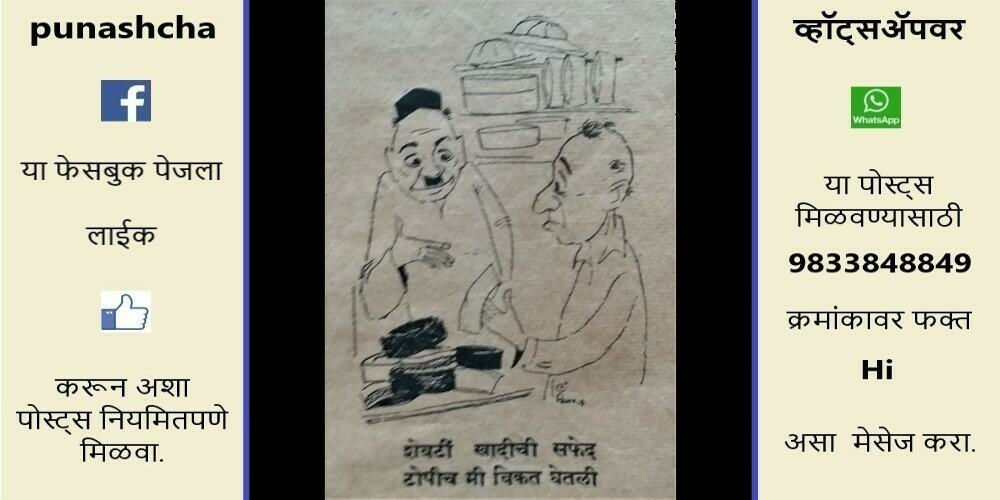 punashcha
या फेसबुक पेजला
लाईक
करून अशा
पोस्ट्स नियमितपणे
मिळवा.
शेवटीं खादीची सफेद
टोपीच मी विकत घेतली
व्हॉट्सॲपवर
WhatsApp
या पोस्ट्स
मिळवण्यासाठी
9833848849
क्रमांकावर फक्त
Hi
असा मेसेज करा.